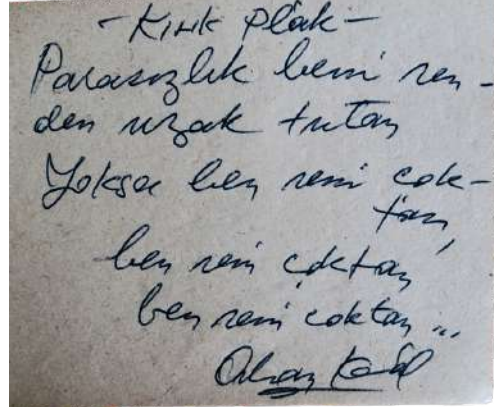 - Kırık Plak -
Parasızlık beni sen-
den uzak tutan
Yoksa ben seni çok-
tan,
ben seni çoktan,
ben seni çoktan...
Orhan Kemal